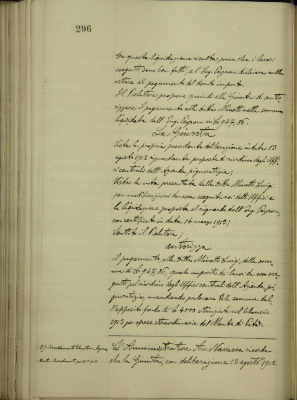 296
In questa liquidazione risulta pure che i lavori
eseguiti sono ben fatti, e l'Ing. Peyron dichiara nulla
ostare al pagamento del conto importo.
Il Relatore propone quindi alla Giunta di auto-
rizzare il pagamento alla ditta Minotti nella somma
liquidata dall'Ing. Peyron in £ 947,86.
La Giunta
Vista la propria precedente deliberazione in data 13
agosto 1912 riguardante proposte di riordino degli Uffi-
ci centrali dell'Azienda pignoratizia;
Vista la nota presentata dalla ditta Minotti Luigi
per modificazioni da essa eseguite nei detti Uffici e
la liquidazione proposta al riguardo dall'Ing. Peyron,
con certificato in data 14 marzo 1913;
Sentito il Relatore;
autorizza
il pagamento alla ditta Minotti Luigi, della som-
ma di £ 947,86, quale importo di lavori da essa ese-
guiti pel riordino degli Uffici centrali dell'Azienda pi-
gnoratizia, mandando prelevare detta somma dal
l'apposito fondo di £ 4000 stanziato nel bilancio
1913 per opere straordinarie del Monte di Pietà.
L'Amministratore Avv. Navarra ricorda
che la Giunta, con deliberazione 13 agosto 1912